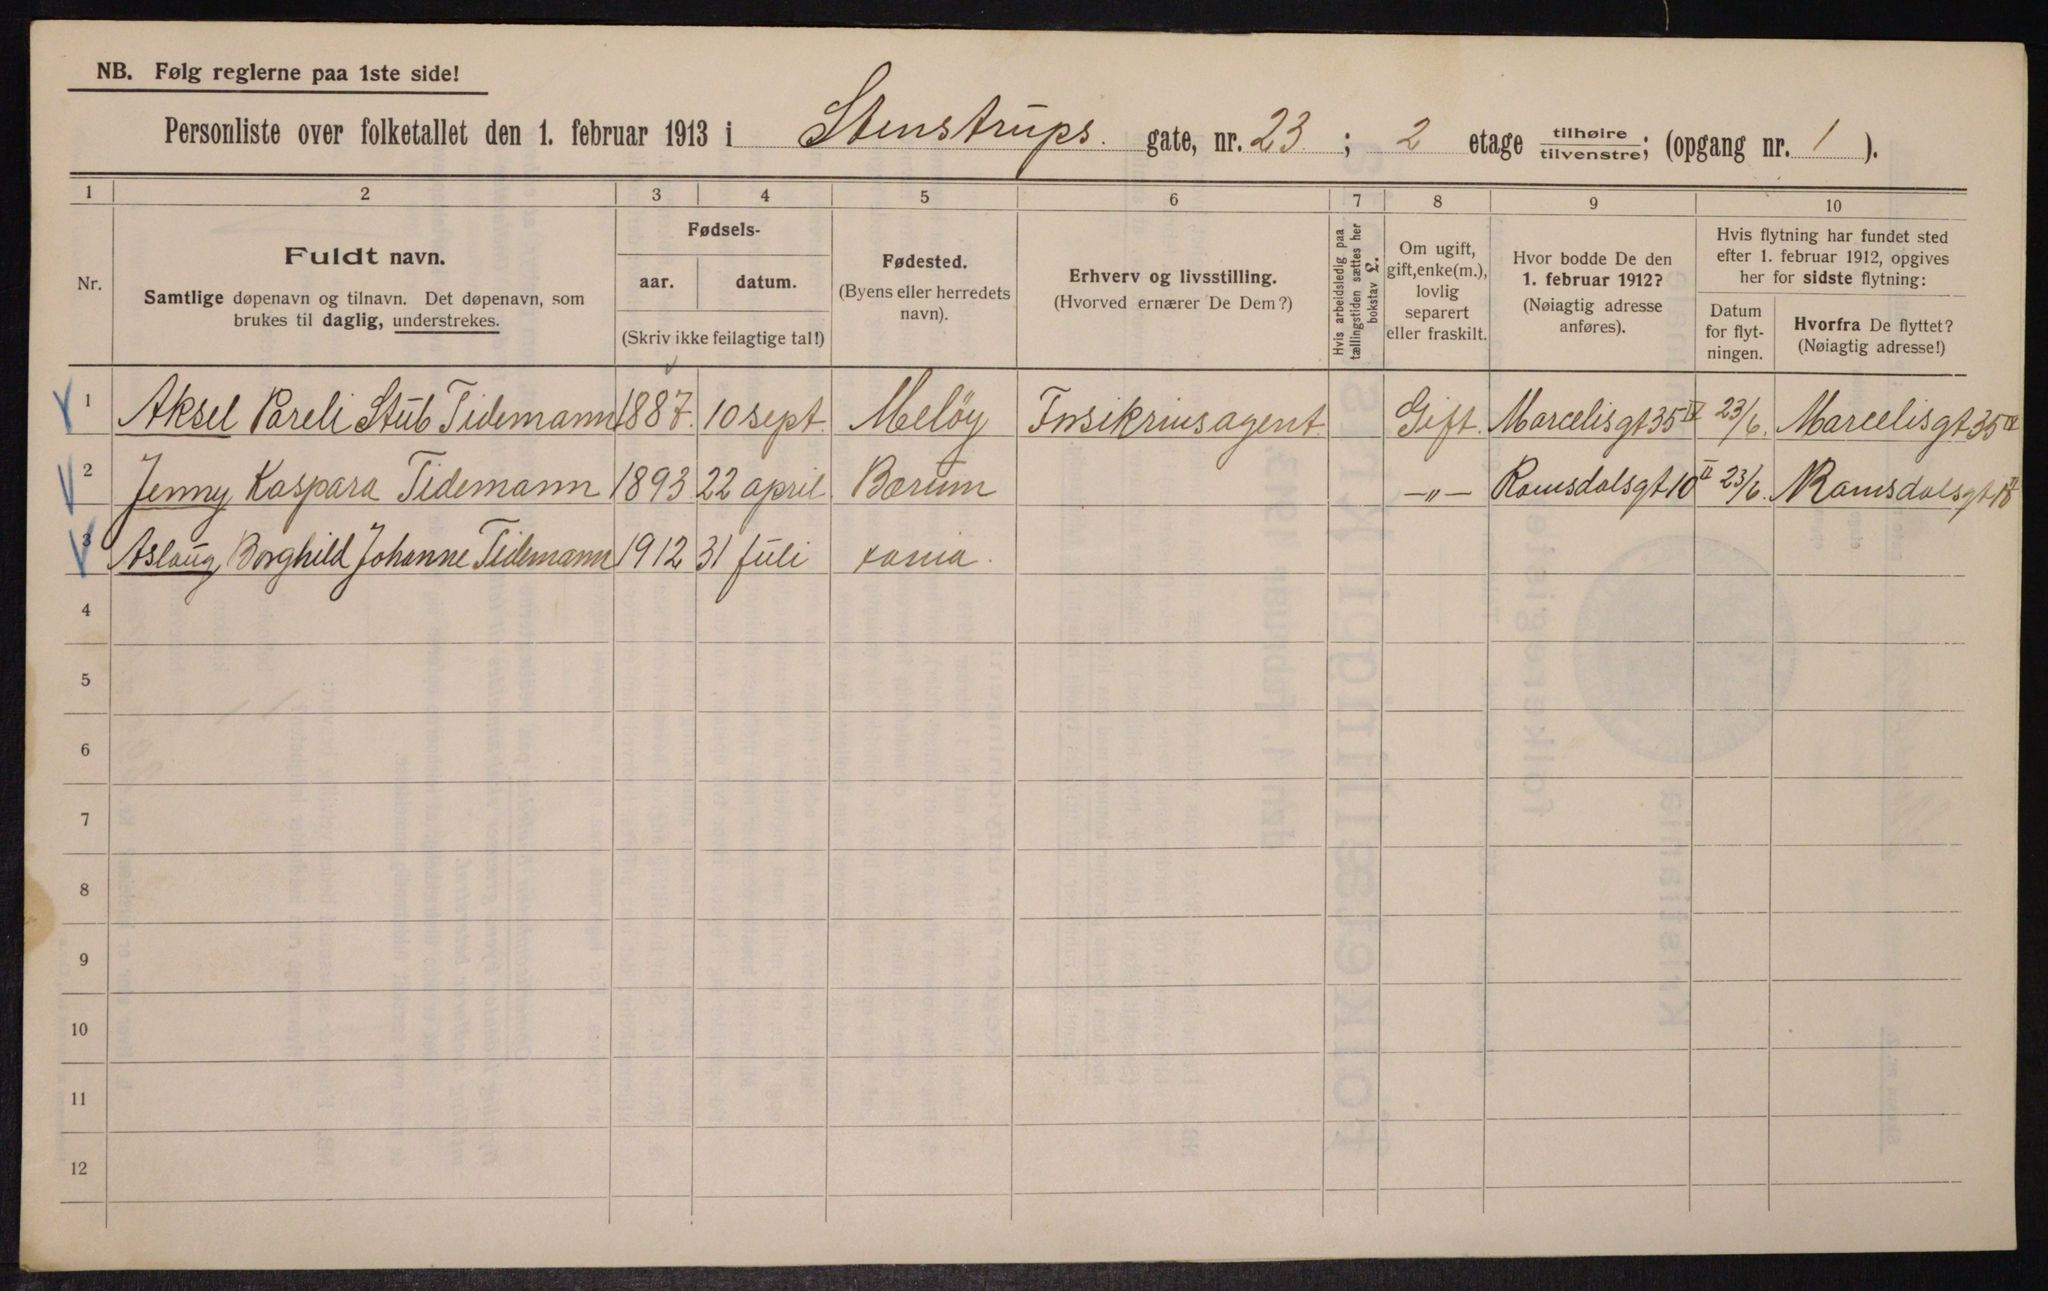 NB. Følg reglerne paa 1ste side!
Personliste over folketallet den 1. februar 1913 i Stenstrups gate, nr. 23 ; 2 etage tilhøire / tilvenstre; (opgang nr. 1 ).
1 2 3 4 5 6 7 8 9 10
Nr.
Fuldt navn.
Samtlige døpenavn og tilnavn. Det døpenavn, som
brukes til daglig, understrekes.
Fødsels-
aar. datum.
(Skriv ikke feilagtige tal!)
Fødested.
(Byens eller herredets
navn).
Erhverv og livsstilling.
(Hvorved ernærer De Dem?)
Hvis arbeidsledig paa
tællingstiden sættes her
bokstav L.
Om ugift,
gift, enke(m.),
lovlig
separert
eller fraskilt.
Hvor bodde De den
1. februar 1912?
(Nøiagtig adresse
anføres).
Hvis flytning har fundet sted
efter 1. februar 1912, opgives
her for sidste flytning:
Datum
for flyt-
ningen.
Hvorfra De flyttet?
(Nøiagtig adresse!)
1 Aksel Pareli Stub Tidemann 1887. 10 sept. Meløy Forsikrinsagent. Gift. Marcelisgt 35 IV 23/6. Marcelisgt 35 IV
2 Jenny Kaspara Tidemann 1893 22 april Bærum —"— Romsdalsgt 10 II 23/6. Romsdalsgt 10 II
3 Aslaug Borghild Johanne Tidemann 1912 31 juli xania.
4
5
6
7
8
9
10
11
12